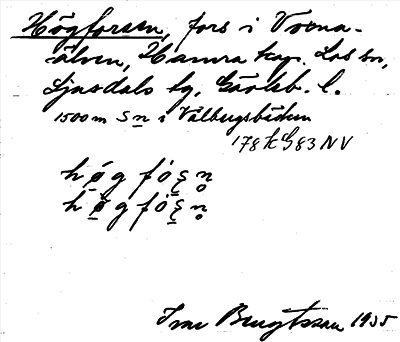 Högforsen, fors i Voxna-
älven, Hamra kap. Los sn,
Ljusdals tg. Gävleb. l.
1500 m S n i Vålbergsbäcken
178 k S 83 NV
hø̄g fo̊s̩n̥
hø̱g fo̊s̩n̥
Ivar Bengtsson 1935